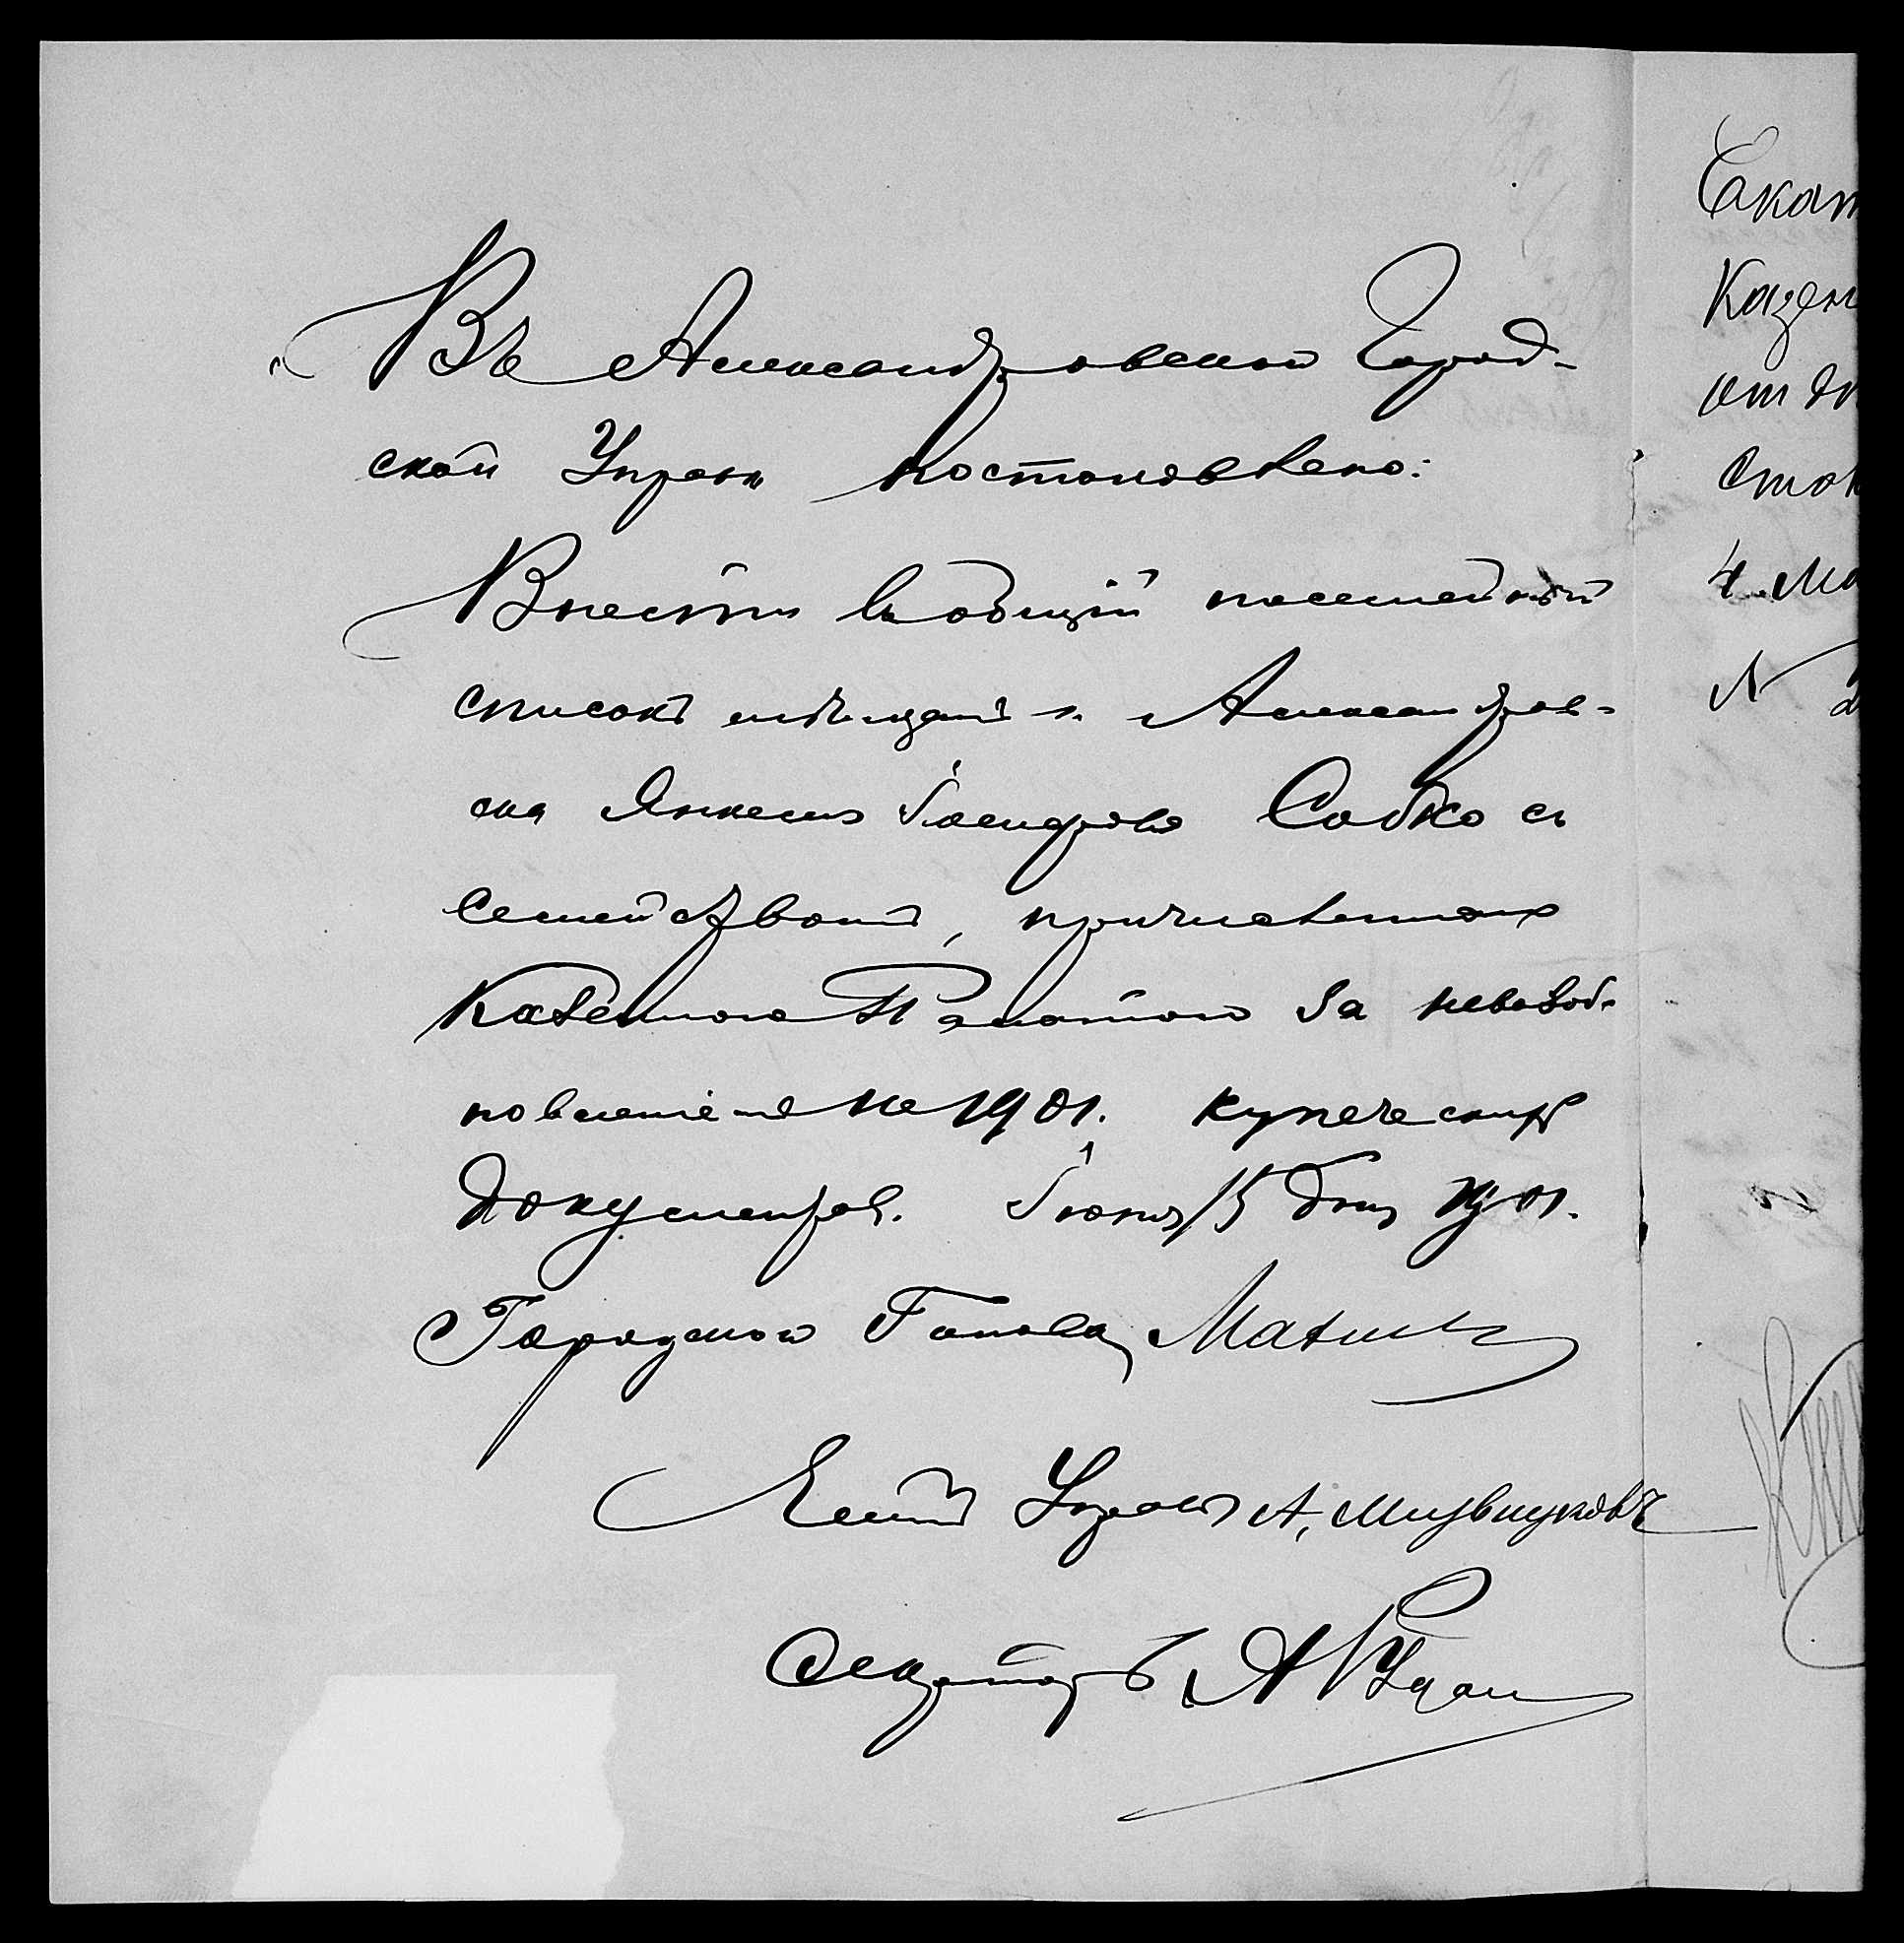 Въ Александровской Город-
ской Управѣ постановлено:
Внести въ общій посемейный
списокъ мѣщанъ г. Александров-
ска Янкеля Собко съ
семействомъ, причисленныхъ
Казенною Палатою за невозоб-
новленіемъ на 1901 г. купеческихъ
документовъ. Іюня 15 дня 1901 г.
Городской Голова
Членъ Управы А.
Секретарь А
Екат
Казен
от
4 Ма
N 2